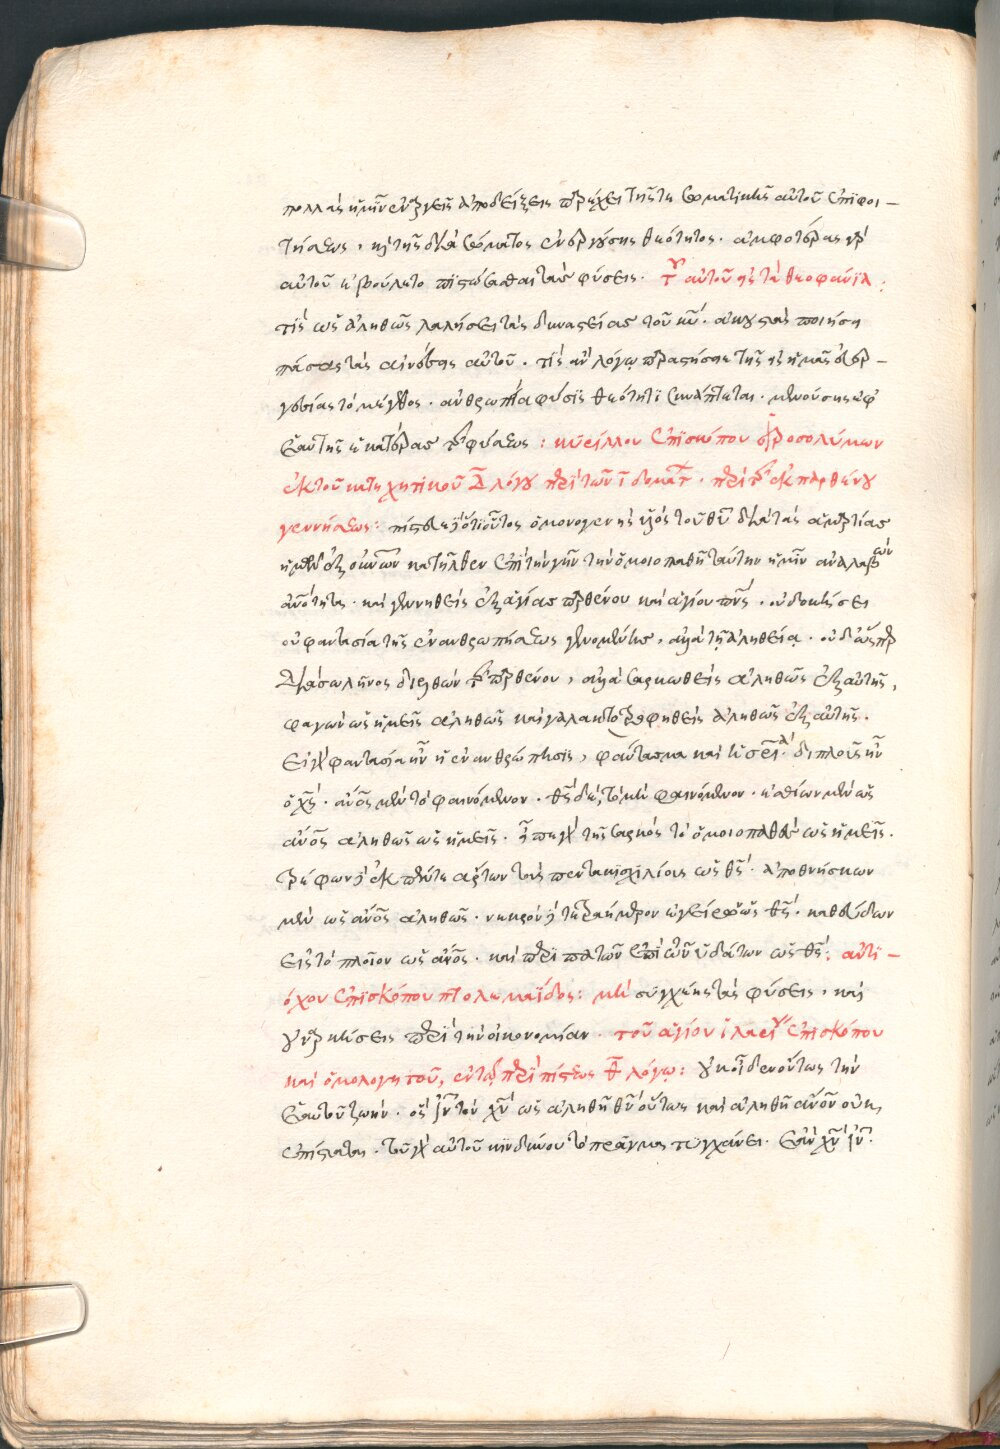 πολλὰς ἡμῖν ἐναργεῖς ἀποδείξεις παρέχει τῆς τε σωματικῆς αὐτοῦ ἐπιφοι-
τήσεως, καὶ τῆς διὰ σώματος ἐνεργούσης θεότητος. ἀμφοτέρας γὰρ
αὐτοῦ ἐβούλετο πιστώσασθαι τὰς φύσεις. τοῦ αὐτοῦ εἰς τὰ θεοφάνϊα:
τίς ὡς ἀληθῶς λαλήσει τὰς δυναστείας τοῦ κυ. ἀκουστὰς ποιήσῃ
πάσας τὰς αἰνέσεις αὐτοῦ. τίς ἂν λόγῳ παραστήσῃ τῆς εἰς ἡμᾶς εὐερ-
γεσίας τὸ μέγεθος. ἀνθρωπεία φύσις θεότητι συνάπτεται. μενούσης ἐφ'
ἑαυτῆς ἑκατέρας τῆς φύσεως: κυρίλλου ἐπϊσκόπου ἱεροσολύμων
ἐκ τοῦ κατηχητικοῦ Δ λόγου περὶ τῶν ϊ δογμάτ. περὶ τῆς ἐκ παρθένου
γεννήσεως: πίστευε δὲ ὅτι οὗτος ὁ μονογενὴς υἱὸς τοῦ θυ διὰ τὰς ἁμαρτίας
ἡμῶν ἐξ οὐνῶν κατῆλθεν ἐπὶ τὴν γῆν τὴν ὁμοιοπαθῆ ταύτην ἡμῖν ἀναλαβὼν
ἀνότητα. καὶ γεννηθεὶς ἐξ ἁγίας παρθένου καὶ ἁγίου πνς. οὐ δοκήσει
οὐ φαντασία τῆς ἐνανθρωπήσεως γενομένης, ἀλλὰ τῇ ἀληθείᾳ. οὐδ' ὥσπερ
διὰ σωλῆνος διελθὼν τῆς παρθένου, ἀλλὰ σαρκωθεὶς ἀληθῶς ἐξ αὐτῆς,
φαγὼν ὡς ἡμεῖς ἀληθῶς καὶ γαλακτοτροφηθεὶς ἀληθῶς ἐξ αὐτῆς.
εἰ γὰρ φαντασία ἦν ἡ ἐνανθρώπησις, φάντασμα καὶ ἡ σρία. διπλοῦς ἦν
ὁ χς. ἀνος μὲν τὸ φαινόμενον. θς δὲ, τὸ μὴ φαινόμενον. ἐσθίων μὲν ὡς
ἀνος ἀληθῶς ὡς ἡμεῖς. εἶχε γὰρ τῆς σαρκὸς τὸ ὁμοιοπαθὲς ὡς ἡμεῖς.
τρέφων δὲ ἐκ πέντε ἄρτων τοὺς πεντακισχιλίους ὡς θς. ἀποθνήσκων
μὲν ὡς ἀνος ἀληθῶς. νεκρὸν δὲ τετραήμερον ἐγείρων ὡς θς. καθεύδων
εἰς τὸ πλοῖον ὡς ἀνος. καὶ περὶπατῶν ἐπὶ τῶν ὑδάτων ὡς θς: ἀντι-
όχου ἐπϊσκόπου πτολεμαΐδος: μὴ συγχέῃς τὰς φύσεις, καὶ
οὐ ναρκήσεις περὶ τὴν οἰκονομίαν. τοῦ ἁγίου ἱλαρίου ἐπϊσκόπου
καὶ ὁμολογητοῦ, ἐν τῷ περὶ πίστεως θ λόγῳ: οὐκ οἶδεν οὗτως τὴν
ἑαυτοῦ ζωὴν. ὃς ιν τὸν χν ὡς ἀληθῆ θν οὕτως καὶ ἀληθῆ ἀνον οὐκ
ἐπίσταται. τοῦ γὰρ αὐτοῦ κινδύνου τὸ πρᾶγμα τυγχάνει. ἐὰν χν ιν.